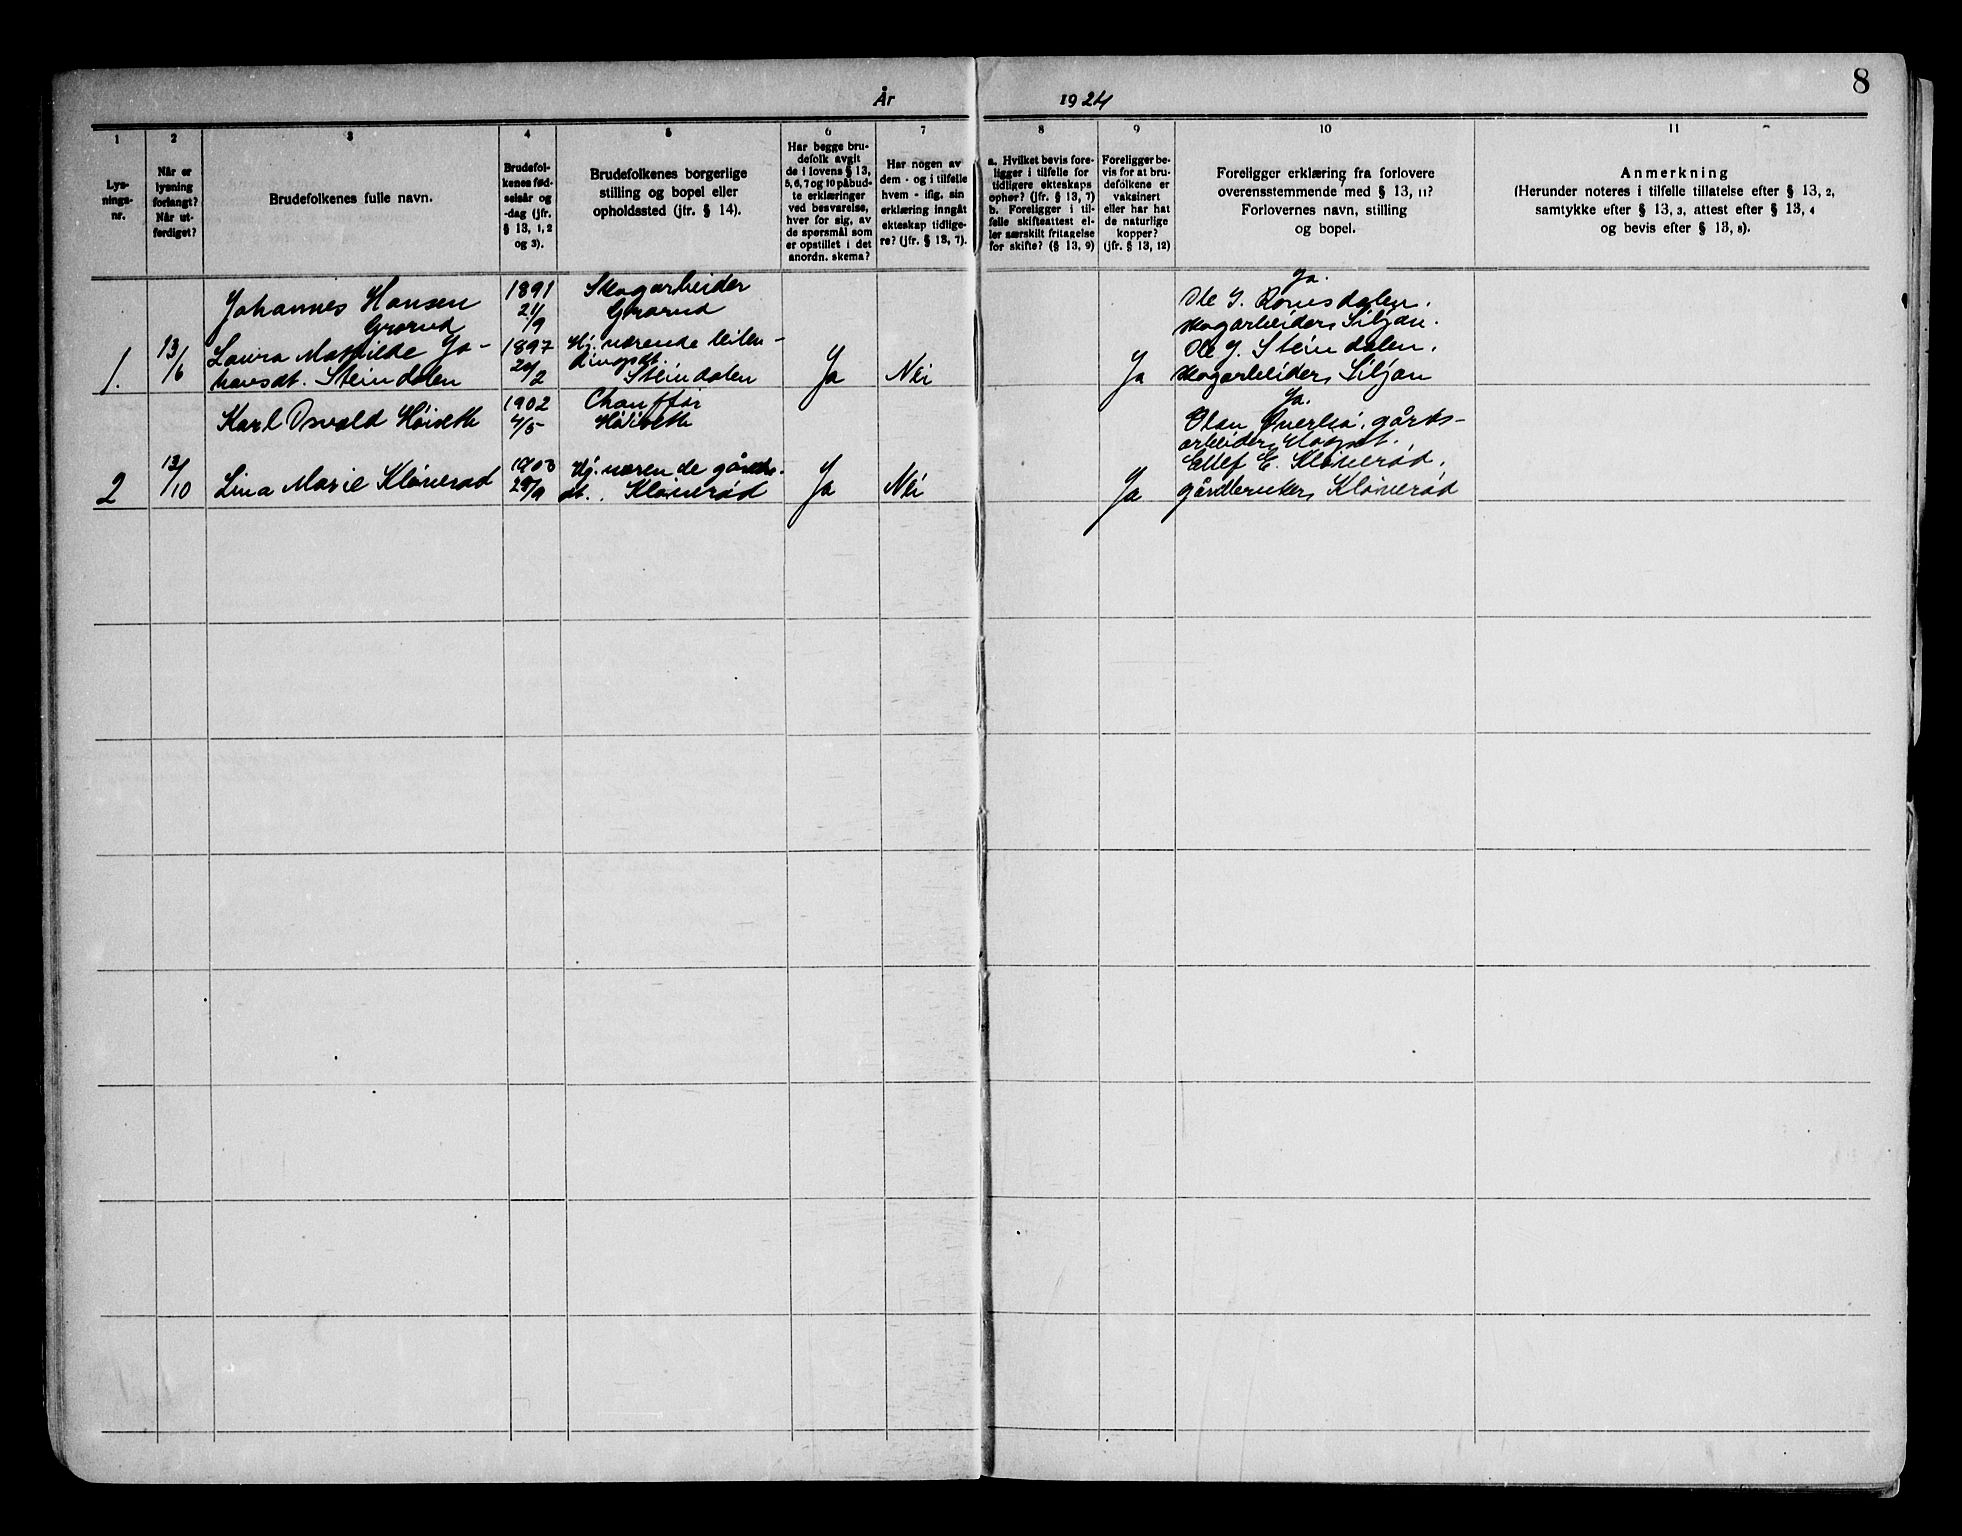 8
År 1924
1
Lys-
nings-
nr.
2
Når er
lysning
forlangt?
Når ut-
ferdiget?
3
Brudefolkenes fulle navn.
4
Brudefol-
kenes fød-
selsår og
-dag (jfr.
§ 13, 1, 2
og 3).
5
Brudefolkenes borgerlige
stilling og bopel eller
opholdssted (jfr. § 14).
6
Har begge bru-
defolk avgit
de i lovens § 13,
5, 6, 7 og 10 påbud-
te erklæringer
ved besvarelse,
hver for sig, av
de spørsmål som
er opstillet i det
anordn. skema?
7
Har nogen av
dem - og i tilfelle
hvem - ifig. sin
erklæring inngåt
ekteskap tidlige-
re? (jfr. § 13, 7).
8
a. Hvilket bevis fore-
ligger i tilfelle for
tidligere ekteskaps
ophør? (jfr. § 13, 7)
b. Foreligger i til-
felle skifteattest el-
ler særskilt fritagelse
for skifte? (§ 13, 9)
9
Foreligger be-
vis for at bru-
defolkene er
vaksinert
eller har hat
de naturlige
kopper?
(jfr. § 13, 12)
10
Foreligger erklæring fra forlovere
overensstemmende med § 13, 11?
Forlovernes navn, stilling
og bopel.
11
Anmerkning
(Herunder noteres i tilfelle tillatelse efter § 13, 2,
samtykke efter § 13, 3, attest efter § 13, 4
og bevis efter § 13, 8).
1.
13/6
Johannes Hansen
Grorud
1891
21/9
Skogarbeider
Grorud
Laura Mathilde Jo-
hansdt. Steindalen
1897
20/2
Hj. værende leilen-
dingsdt.
Steindalen
Ja
Nei
Ja
Ja.
Ole J. Romsdalen,
skogarbeider, Siljan.
Ole J. Steindalen,
skogarbeider, Siljan
2
13/10
Karl Osvald Høiseth
1902
4/5
Chauffør
Høiseth
Lina Marie Kløverød
1903
28/9
Hj. værende gårdbr.
dt. Kløverød
Ja
Nei
Ja
Ja.
Olav Øverbø, gårds-
arbeider,
Ellef E. Kløverød,
gårdbruker, Kløverød